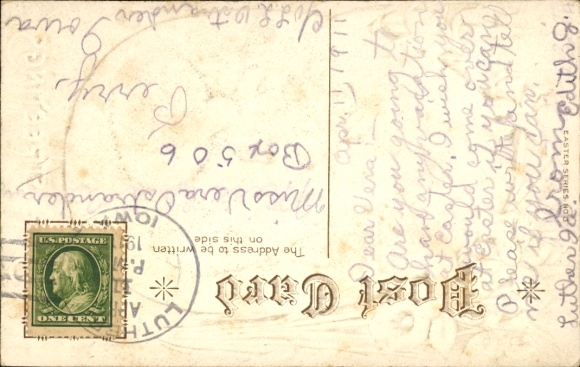 Post Card
The Address to be written
on this side
EASTER SERIES NO.
April 11, 1911
Dear Vera:-
Are you going to
have any vacation
at Easter. I wish you
would come over
at Easter if you can.
Please write and tell
me if you can.
From Edith G.
Luther Ia.
Miss Vera Ostrander
Box 506
Perry,
Iowa
Ostrander
U.S. POSTAGE
ONE CENT
LUTH
IOWA
AP
P.M.
19